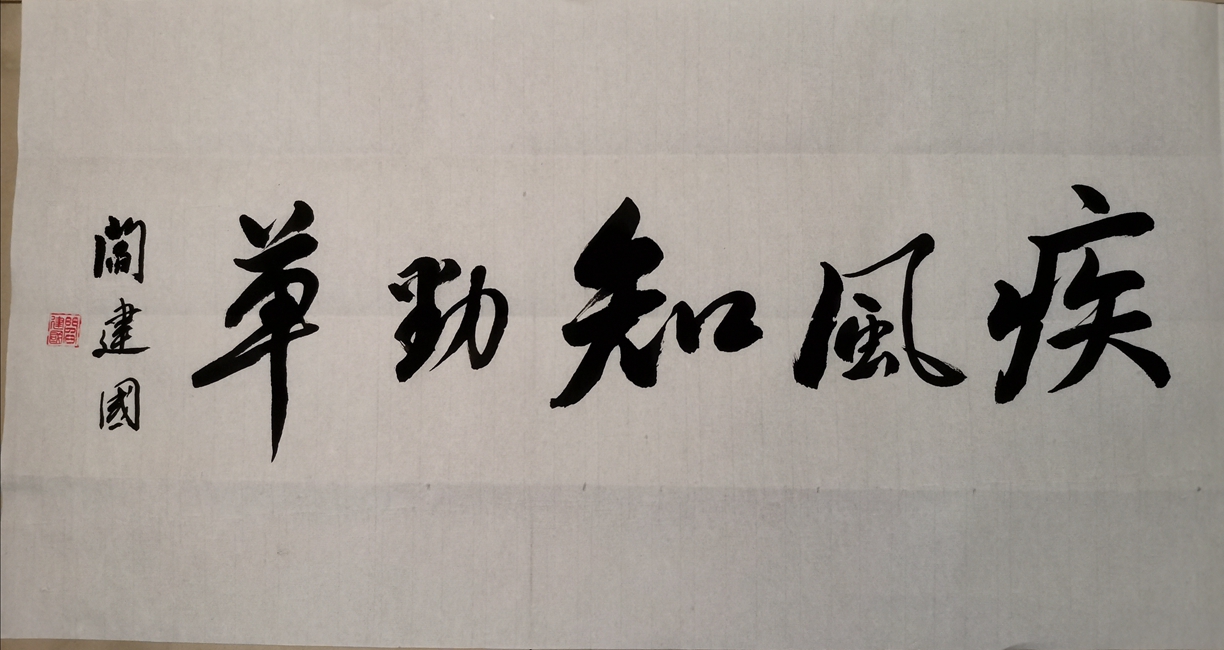 疾風知勁草
閻建國